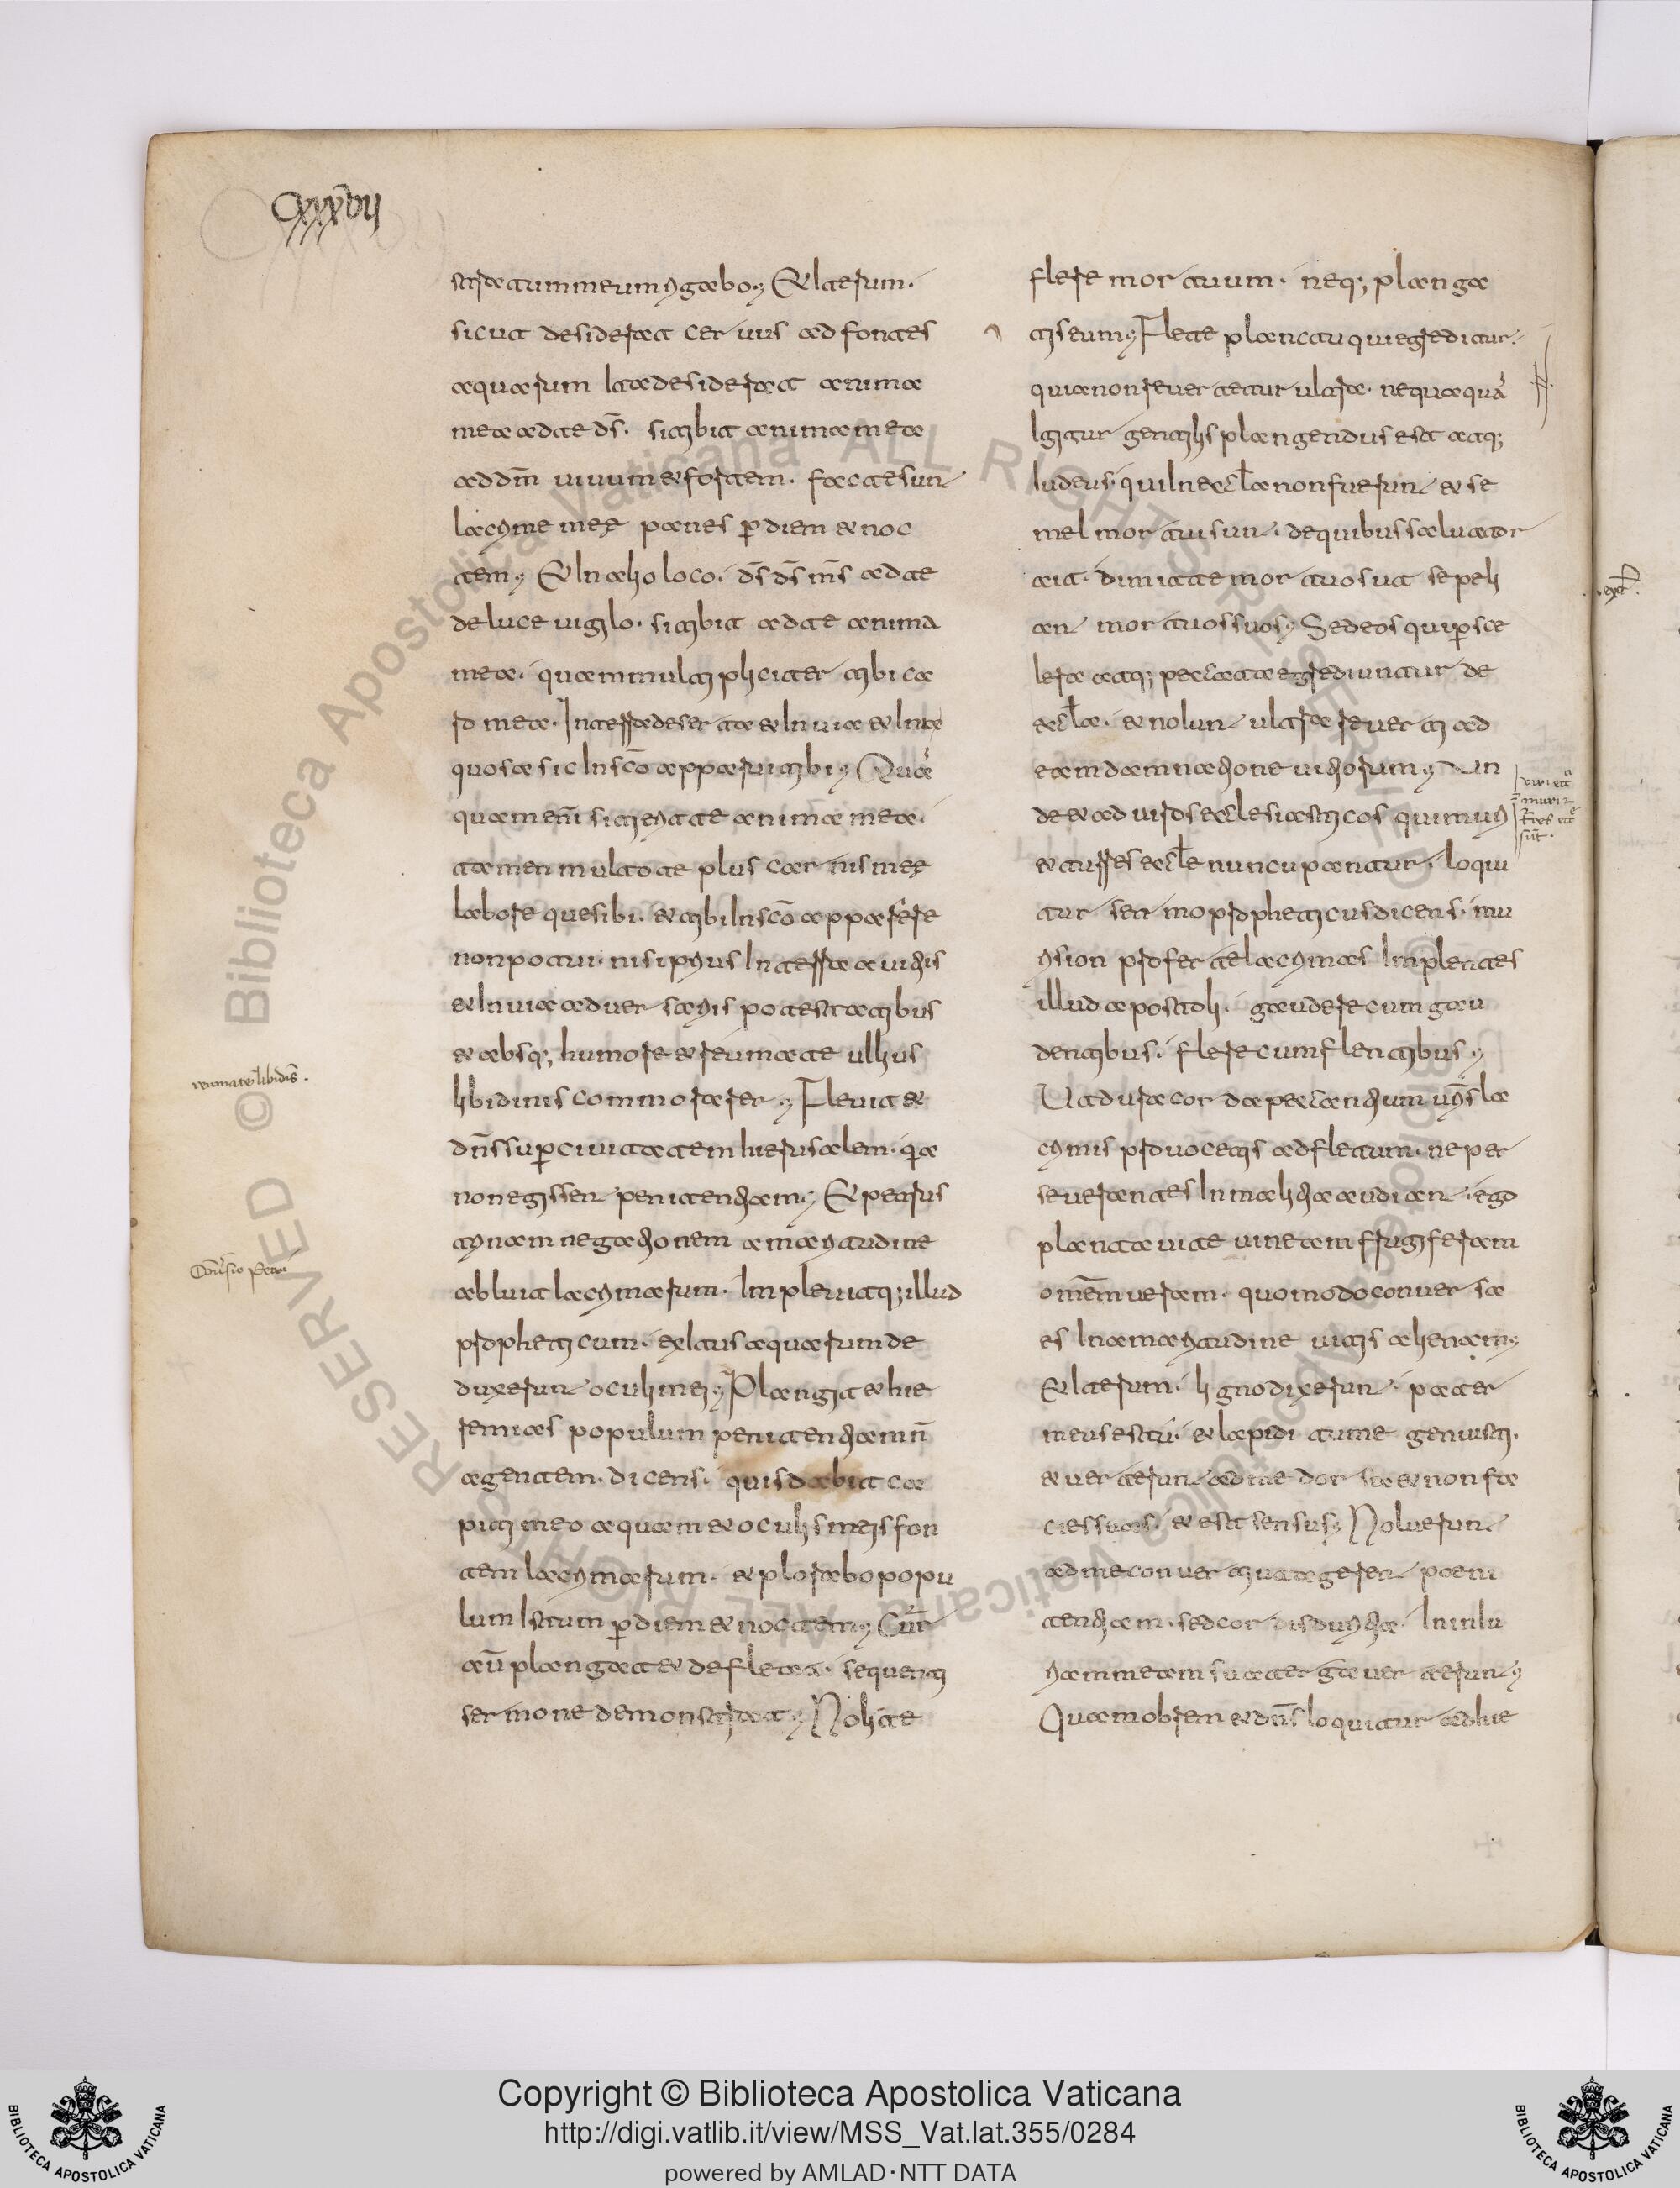 CXXXVII
stratum meum rigabo; Et iterum.
sicut desiderat cervus ad fontes
aquarum ita desiderat anima
mea ad te ds̄. sitibit anima mea
ad dm̄ vivum et fortem. facte sunt
lacrime meę panes p̄ diem et noc
tem; Et In alio loco. ds̄ ds̄ ms̄ ad te
de luce vigilo. sitibit ad te anima
mea. quam multipliciter tibi ca
ro mea. In terra deserta et Invia et Inaq̄
quosa sic In sc̄o apparui tibi; Quā
quam enī sitierit te anima mea.
tamen multo te plus carnis meę
labore quesibi. et tibi In sc̄o apparere
non potui. nisi prius In terra a vitiis
et Invia adversariis potestatibus
et absq; humore et reumate ullius
libidinis commorarer; Flevit et
dn̄s sup̄ civitatem hierusalem. qia
non egissent penitentiam; Et petrus
trinam negationem amaritudine
abluit lacrimarum. Implevitq; illud
propheticum. exitus aquarum de
duxerunt oculi mei; Plangit et hie
remias populum penitentiam n̄
agentem. dicens. quis dabit ca
piti meo aquam et oculis meis fon
tem lacrimarum. et plorabo popu
lum Istum p̄ diem et noctem; Cur
aū plangat et defleat. sequenti
sermone demonstrat; Nolite
flere mortuum. neq; planga
tis eum; Flete planctu qui egreditur.
quia non revertetur ultra. nequaquā
Igitur gentilis plangendus est atq;
Iudeus. qui In eccl̄a non fuerunt et se
mel mortui sunt. de quibus salvator
ait. dimitte mortuos ut sepeli
ant mortuos suos; Sed eos qui p̄ sce
lera atq; peccata egrediuntur de
eccl̄a. et nolunt ultra reverti ad
eam damnatione vitiorum; Un
de et ad viros ecclesiasticos qui muri
et turres eccl̄e nuncupantur. loqui
tur sermo propheticus dicens. mu
ri sion proferte lacrimas Implentes
illud apostoli. gaudere cum gau
dentibus. flere cum flentibus;
Ut dura corda peccantium vr̄is la
crimis provocetis ad fletum. ne per
severantes In malitia audiant. ego
plantavi te vineam frugiferam
omēm veram. quomodo conversa
es In amaritudine vitis alienam;
Et Iterum. ligno dixerunt. pater
meus es tū. et lapidi tu me genuisti.
et verterunt ad me dorsa et non fa
cies suas. et est sensus; Noluerunt
ad me converti ut agerent poeni
tentiam. sed cordis duritia In iniu
riam meam sua terga verterunt;
Quam ob rem et dn̄s loquitur ad hie
reumate libidis̄.
Cōversio Petri
Copyright © Biblioteca Apostolica Vaticana
http://digi.vatlib.it/view/MSS_Vat.lat.355/0284
powered by AMLAD·NTT DATA
BIBLIOTECA APOSTOLICA VATICANA
BIBLIOTECA APOSTOLICA VATICANA
© Biblioteca Apostolica Vaticana ALL RIGHTS RESERVED
© Biblioteca Apostolica Vaticana ALL RIGHTS RESERVED